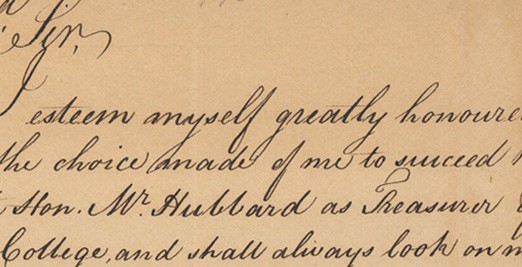 Sir,
I esteem myself greatly honoure
the choice made of me to succeed
Hon. Mr. Hubbard as Treasurer
College, and shall always look on m